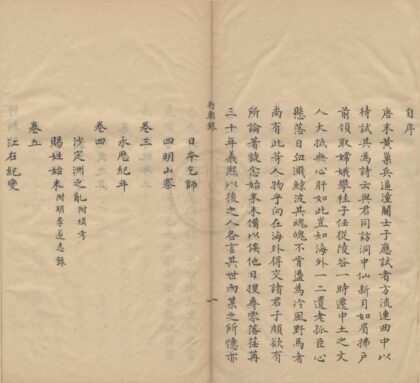 自序
唐末黃巢逼潼關士子應試者方流連曲中以
待試其為詩云與君同訪洞中仙新月如眉拂戶
前領取嫦娥攀桂子任從陵谷一時遷中土之文
人大抵無心肝如此豈知海外一二遺老孤臣心
懸落日血濺鯨波其魂魄不肯盪為冷風野馬者
尚有此等人物乎向在海外得交諸君子頗欲有
所論著旋念始末未備以俟他日搜尋零落荏苒
三十年義熙以後之人各言其世而某之所憶亦
行朝錄
一
日本乞師
四明山寨
卷三
永曆紀年
卷四
沙定洲之亂附考
賜姓始末附明季遂志錄
卷五
江右紀變